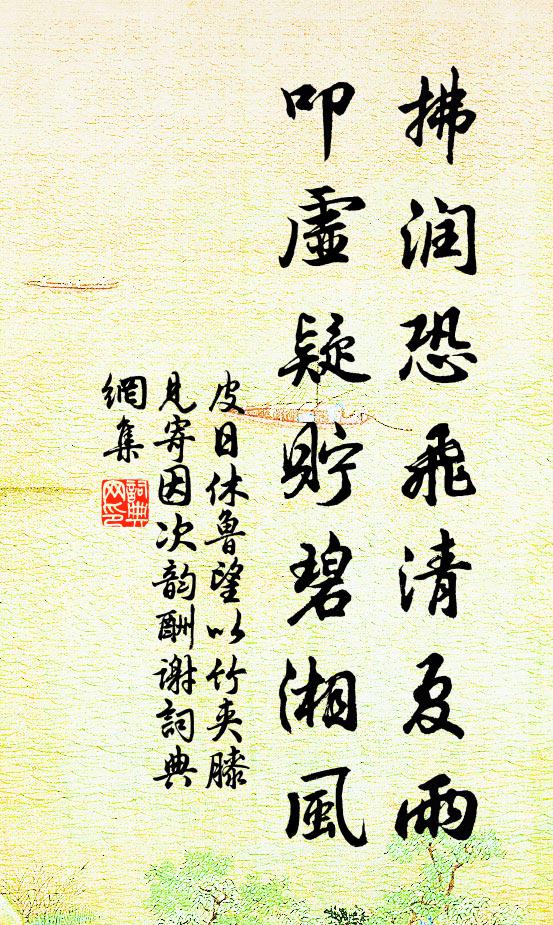 拂润恐飛清夏雨
叩虛疑貯碧湘風
皮日休魯望以竹夾膝
見寄因次韵酬谢詞典
網集
詞典
网印